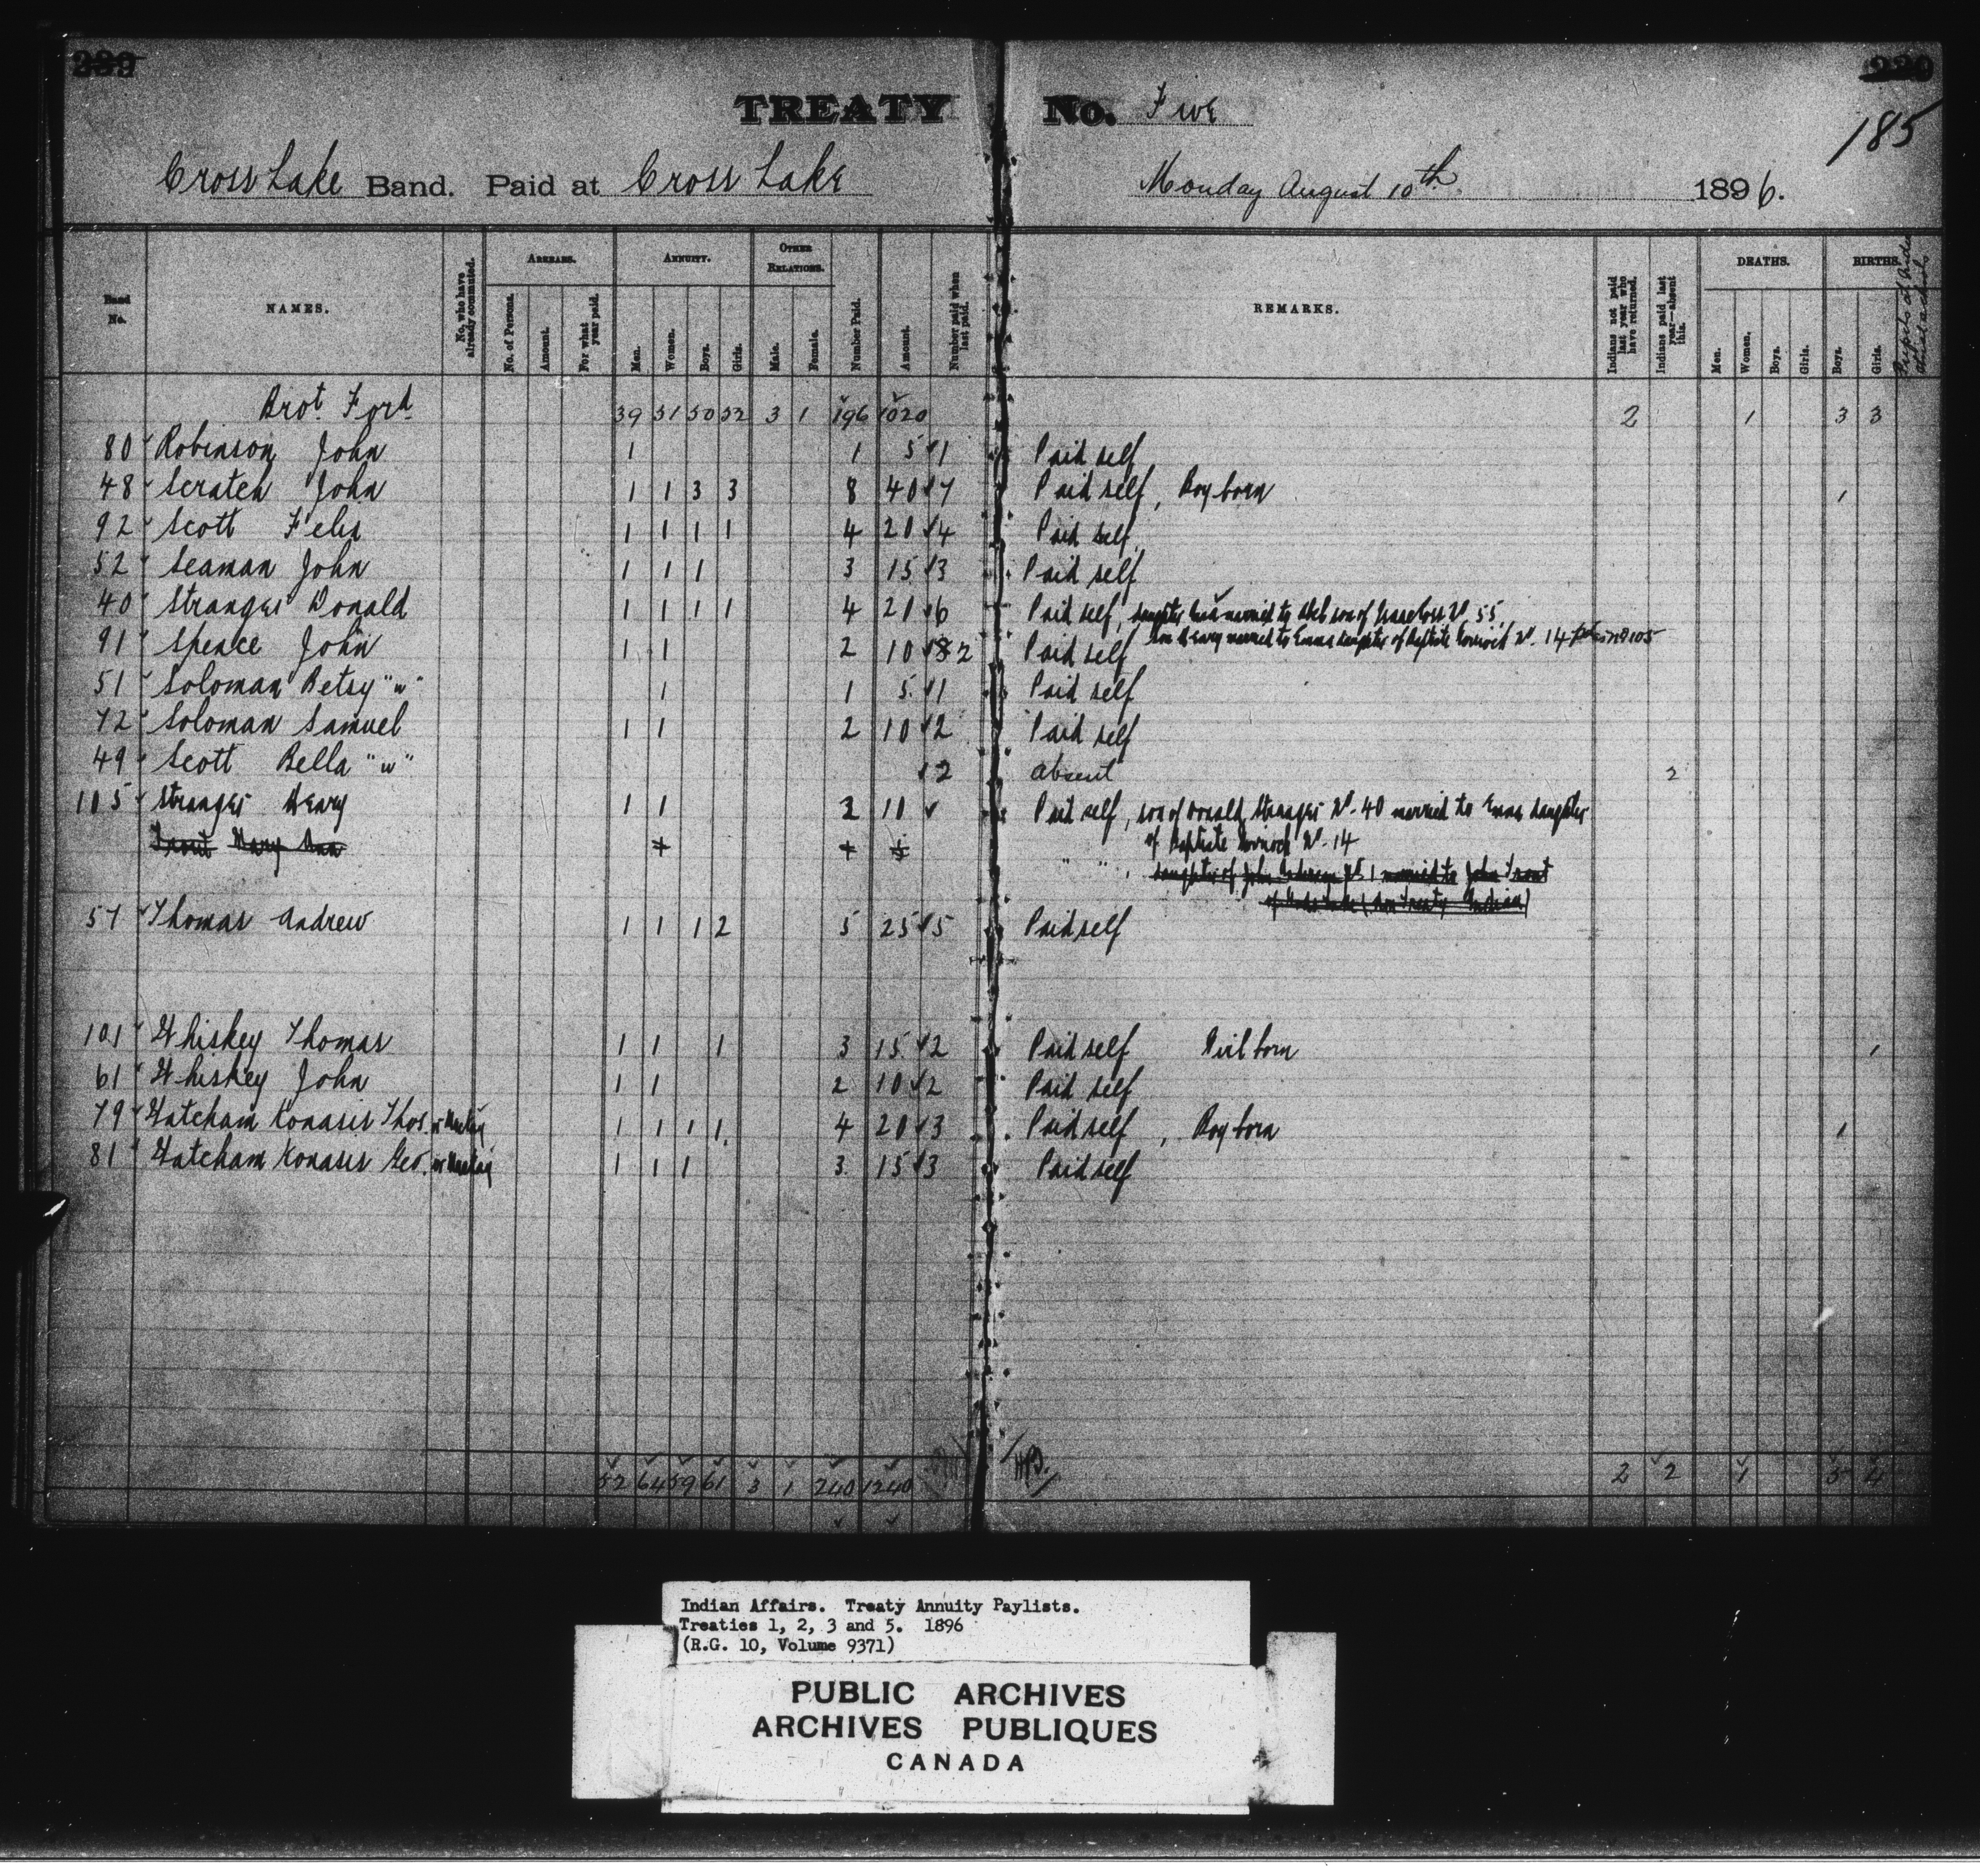 TREATY No. Five
185
Cross Lake Band. Paid at Cross Lake Monday August 10th 1896.
Band No.
NAMES.
No. who have already commuted.
ARREARS.
No. of Persons.
Amount.
For what year paid.
ANNUITY.
Men.
Women.
Boys.
Girls.
OTHER RELATIONS.
Male.
Female.
Number Paid.
Amount.
Number paid when last paid.
REMARKS.
Indians not paid last year who have returned.
Indians paid last year—absent this.
DEATHS.
Men.
Women.
Boys.
Girls.
BIRTHS.
Boys.
Girls.
Brot. Ford 39 51 50 52 3 1 196 1020 2 1 3 3
80 Robinson John 1 1 5 1 Paid self
48 Scratch John 1 1 3 3 8 40 7 Paid self, Boy born 1
92 Scott Felix 1 1 1 1 4 20 4 Paid self
52 Seaman John 1 1 1 3 15 3 Paid self
40 Stranger Donald 1 1 1 1 4 20 6 Paid self, daughter married to son of No. 55
son Henry married to Emma daughter of Baptiste No. 14 No 105
91 Spence John 1 1 2 10 2 Paid self
51 Soloman Betsy "w" 1 1 5 1 Paid self
72 Soloman Samuel 1 1 2 10 2 Paid self
49 Scott Bella "w" 2 absent 2
105 Stranger Henry 1 1 2 10 Paid self, son of Donald Stranger No. 40 married to Emma daughter
of Baptiste No. 14
Trout Mary Ann " " daughter of John No. 1 married to John Trout
of (Non Treaty Indian)
57 Thomas Andrew 1 1 1 2 5 25 5 Paid self
101 Whiskey Thomas 1 1 1 3 15 2 Paid self Girl born 1
61 Whiskey John 1 1 2 10 2 Paid self
79 Watcham Konasis Thos. or 1 1 1 1 4 20 3 Paid self, Boy born 1
81 Watcham Konasis Geo. or 1 1 1 3 15 3 Paid self
52 64 59 61 3 1 240 1240 2 2 1 5 4
Indian Affairs. Treaty Annuity Paylists.
Treaties 1, 2, 3 and 5. 1896
(R.G. 10, Volume 9371)
PUBLIC ARCHIVES
ARCHIVES PUBLIQUES
CANADA